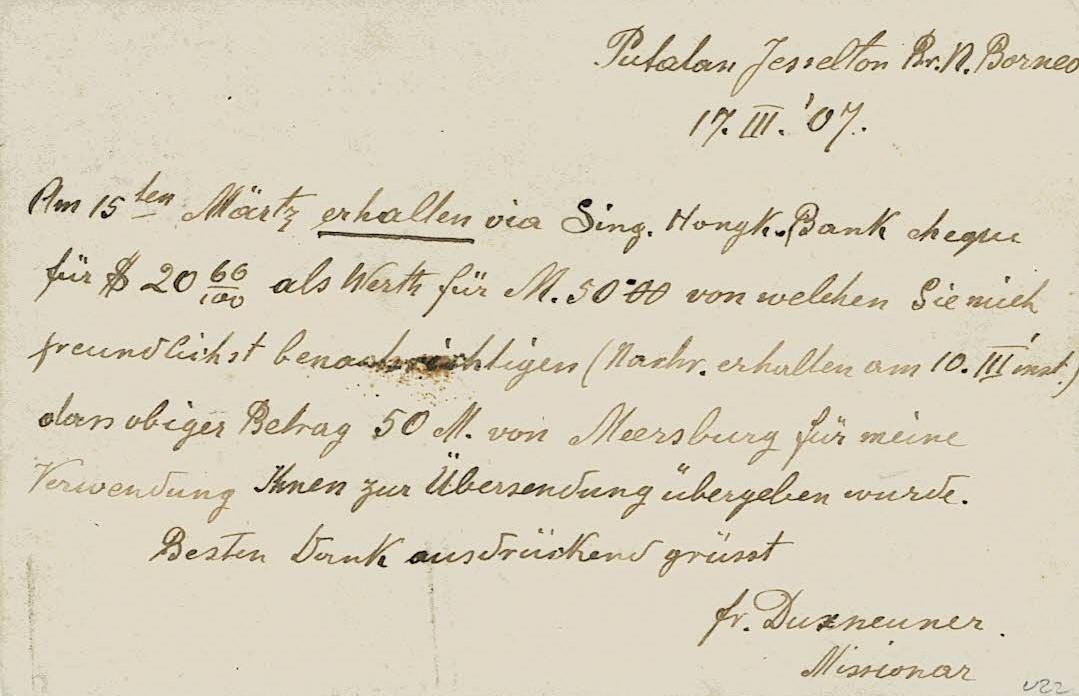 Putatan Jesselton Br. N. Borneo
17. III. '07.
Am 15ten Märtz erhalten via Sing. Hongk. Bank cheque
für $ 20 60/100 als Werth für M. 50 00 von welchen Sie mich
freundlichst benachrichtigen (Nachr. erhalten am 10. III inst.)
dass obiger Betrag 50 M. von Meersburg für meine
Verwendung Ihnen zur Übersendung übergeben wurde.
Besten Dank ausdrückend grüsst
fr. Duxneuner.
Missionar